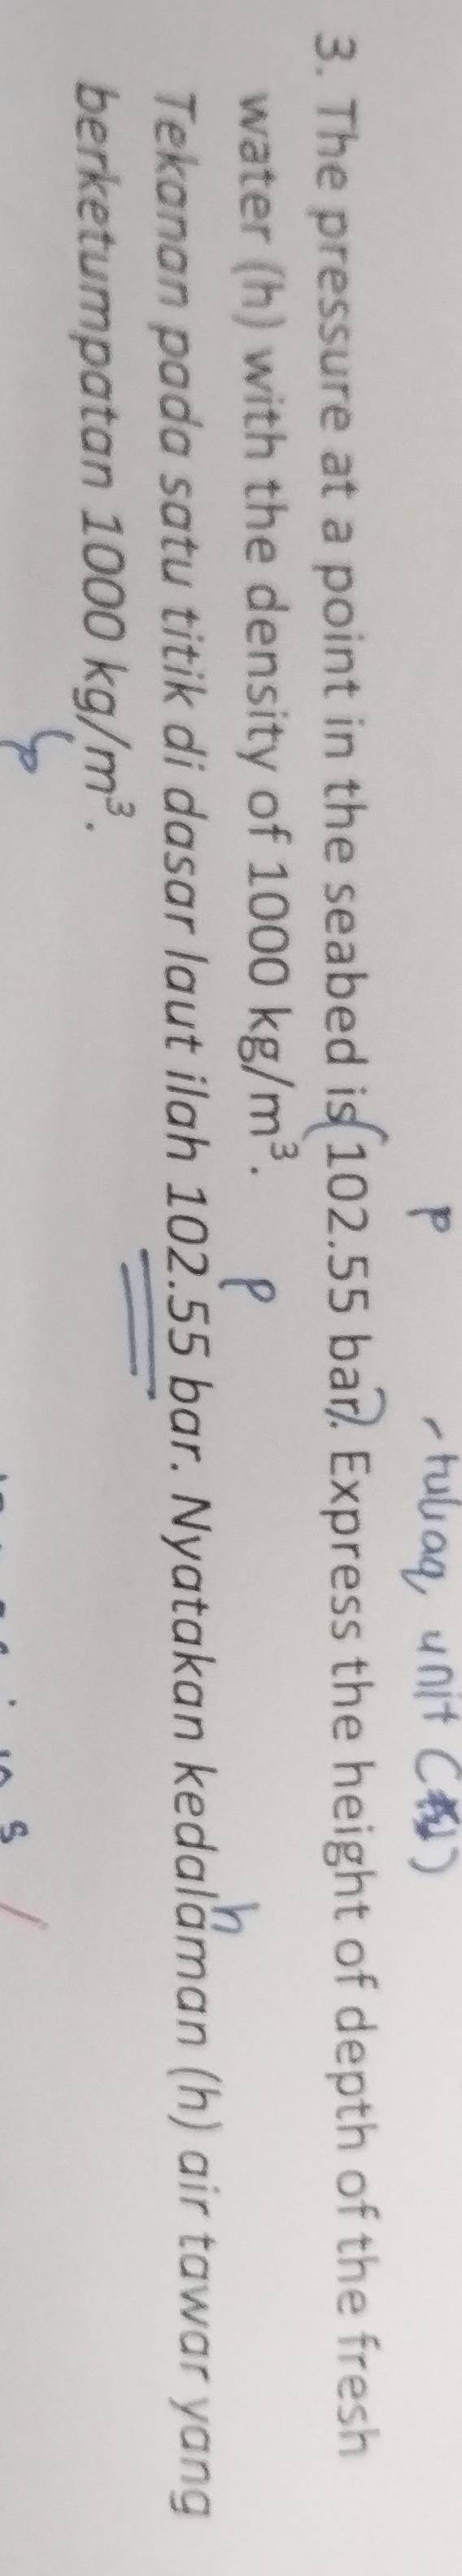 p
tukaq unit
3. The pressure at a point in the seabed is 102.55 bar. Express the height of depth of the fresh
water (h) with the density of 1000 kg/m³.
p
h
Tekanan pada satu titik di dasar laut ilah 102.55 bar. Nyatakan kedalaman (h) air tawar yang
berketumpatan 1000 kg/m³.